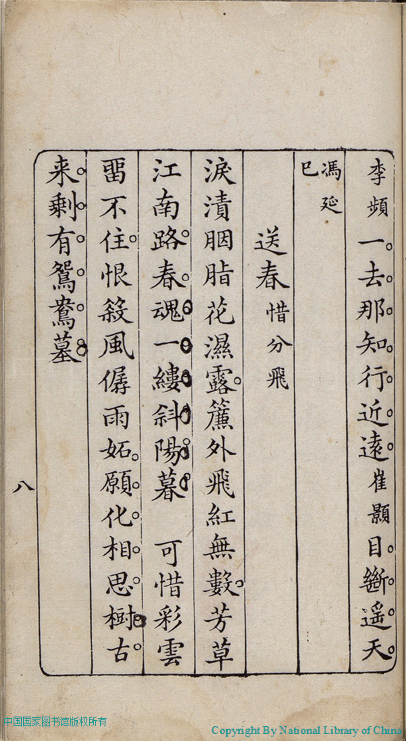 李頻一去那知行近遠崔顥目斷遙天
馮延
巳
送春惜分飛
淚漬胭脂花濕露簾外飛紅無數芳草
江南路春魂一縷斜陽暮 可惜彩雲
畱不住恨殺風僝雨妬願化相思樹古
来剩有鴛鴦墓
八
中国国家图书馆版权所有
Copyright By National Library of China